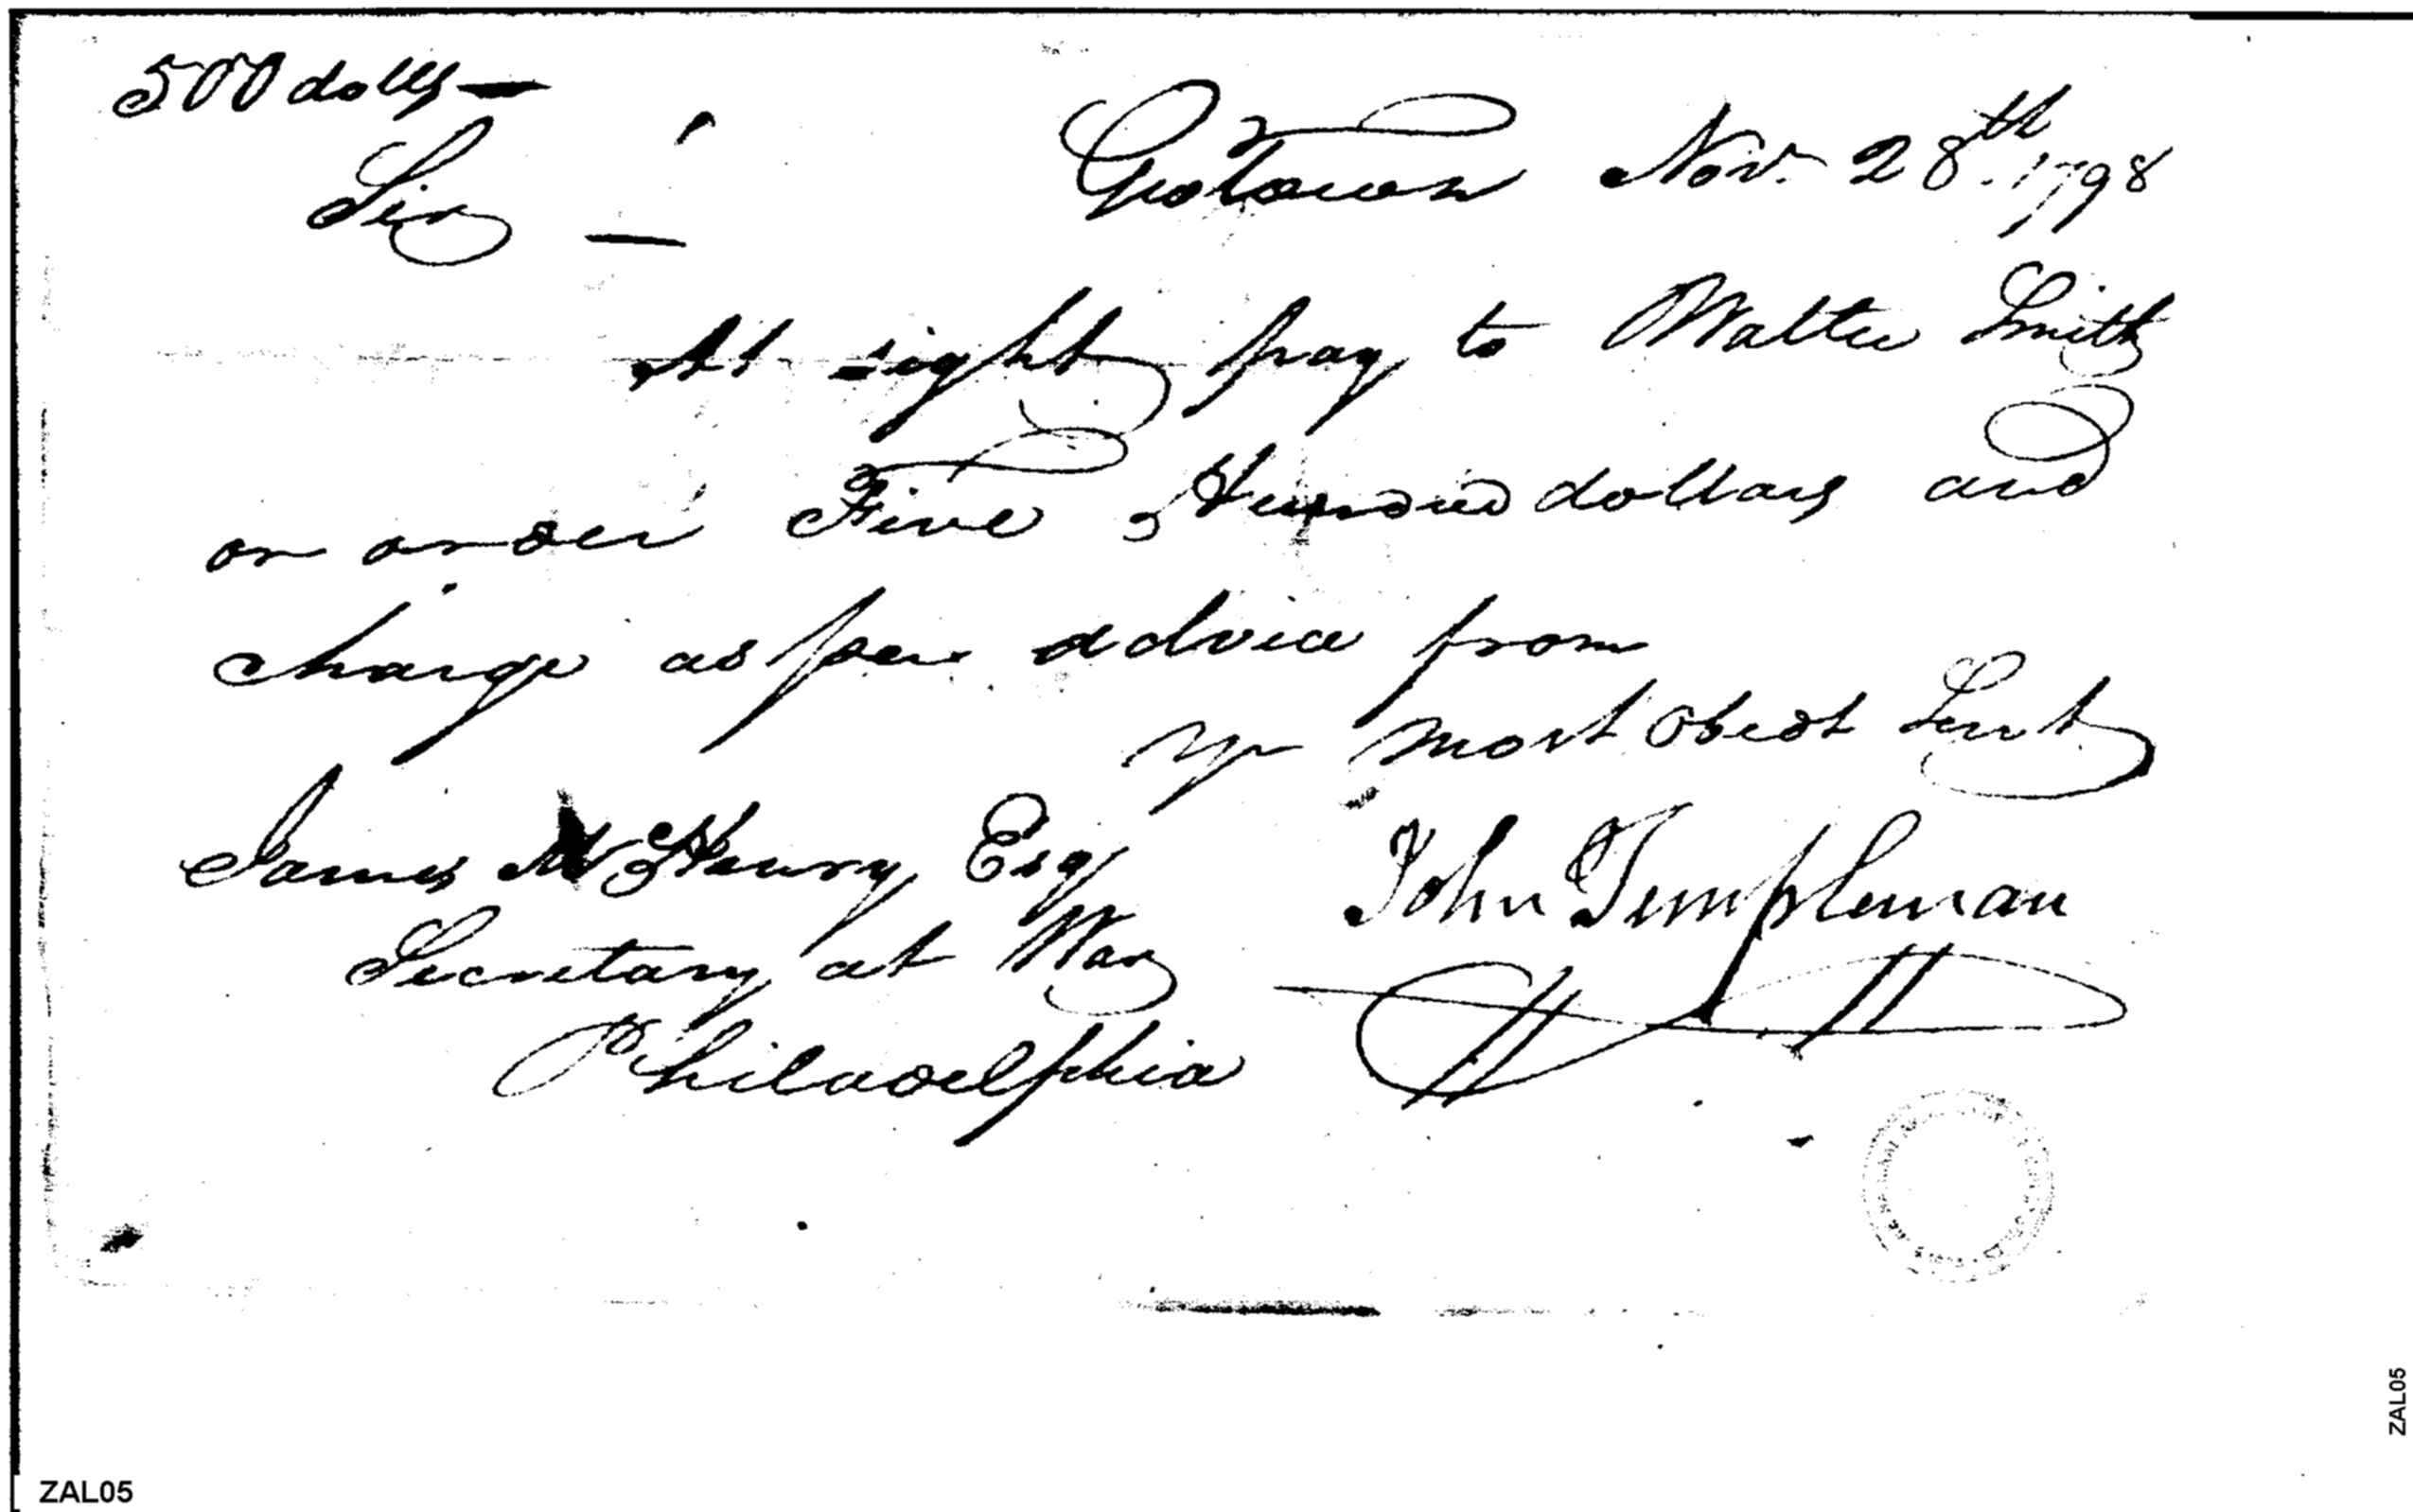 500 dolls —
GeoTown Nov. 28th. 1798
Sir —
At sight pay to Walter Smith
or order Five Hundred dollars and
charge as per advice from
yr most obedt Servt
James McHenry Esq
John Templeman
Secretary at War
Philadelphia
ZAL05
ZAL05